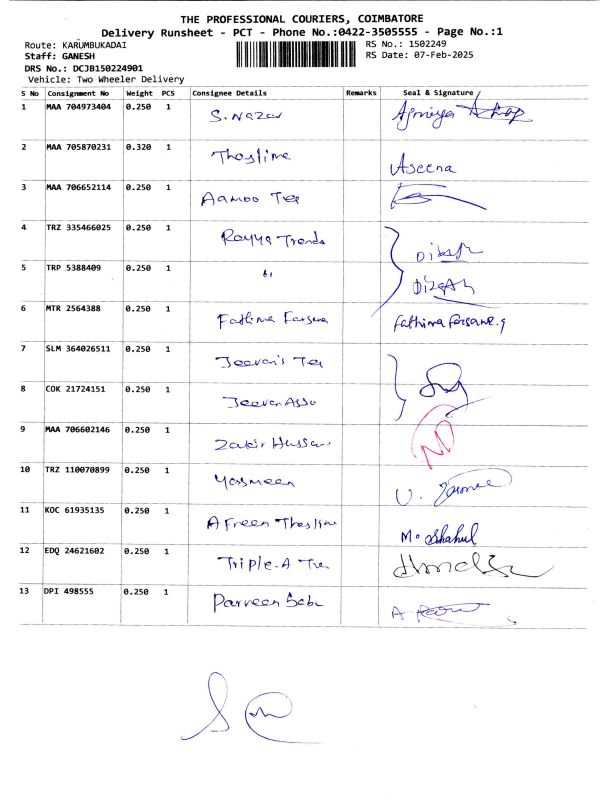 THE PROFESSIONAL COURIERS, COIMBATORE
Delivery Runsheet - PCT - Phone No.:0422-3505555 - Page No.:1
Route: KARUMBUKADAI RS No.: 1502249
Staff: GANESH RS Date: 07-Feb-2025
DRS No.: DCJB150224901
Vehicle: Two Wheeler Delivery
S No Consignment No Weight PCS Consignee Details Remarks Seal & Signature
1 MAA 704973404 0.250 1 S. Nazar
2 MAA 705870231 0.320 1 Thaslima Aseena
3 MAA 706652114 0.250 1 Aamoo Tex
4 TRZ 335466025 0.250 1 Rayya Trends
5 TRP 5388409 0.250 1 61
6 MTR 2564388 0.250 1 Fathima Farsana fathima farsana.g
7 SLM 364026511 0.250 1 Jeevan's Tex
8 COK 21724151 0.250 1 Jeevan Asso
9 MAA 706602146 0.250 1 Zakir Hussain ND
10 TRZ 110070899 0.250 1 Yasmeen
11 KOC 61935135 0.250 1 Afreen Thaslima M. Shahul
12 EDQ 24621602 0.250 1 Triple.A Tex
13 DPI 498555 0.250 1 Parveen Babu